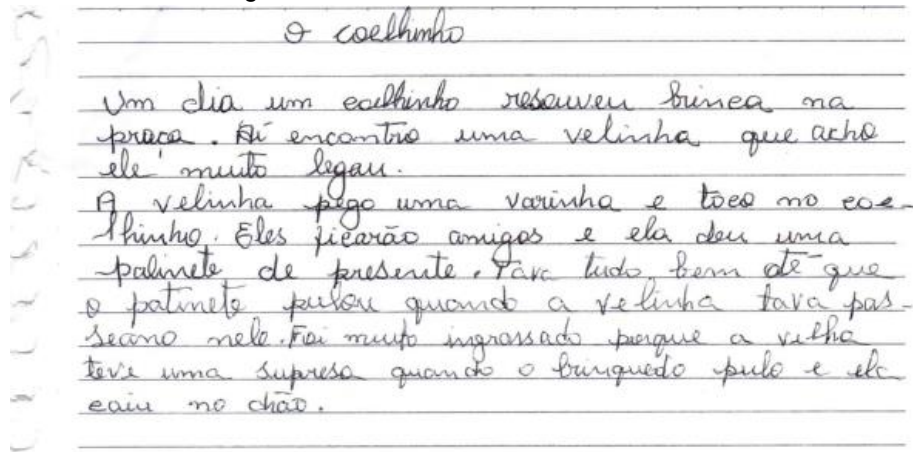 O coelhinho
Um dia um coelhinho resouveu brinca na
praça. Aí encontro uma velinha que acho
ele muito legau.
A velinha pego uma varinha e toco no coe-
lhinho. Eles ficarão amigos e ela deu uma
patinete de presente. Tava tudo bem até que
o patinete pulou quando a velinha tava pas-
seano nele. Foi muito ingrassado porque a velha
teve uma supresa quando o brinquedo pulo e ela
caiu no chão.